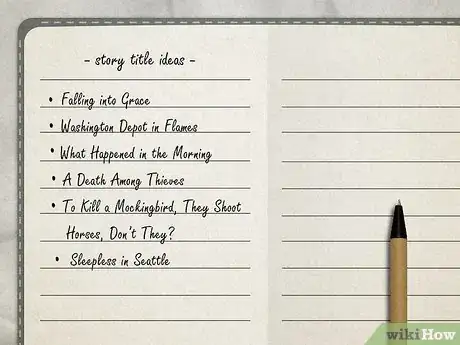 - story title ideas -
• Falling into Grace
• Washington Depot in Flames
• What Happened in the Morning
• A Death Among Thieves
• To Kill a Mockingbird, They Shoot
Horses, Don't They?
• Sleepless in Seattle
wikiHow